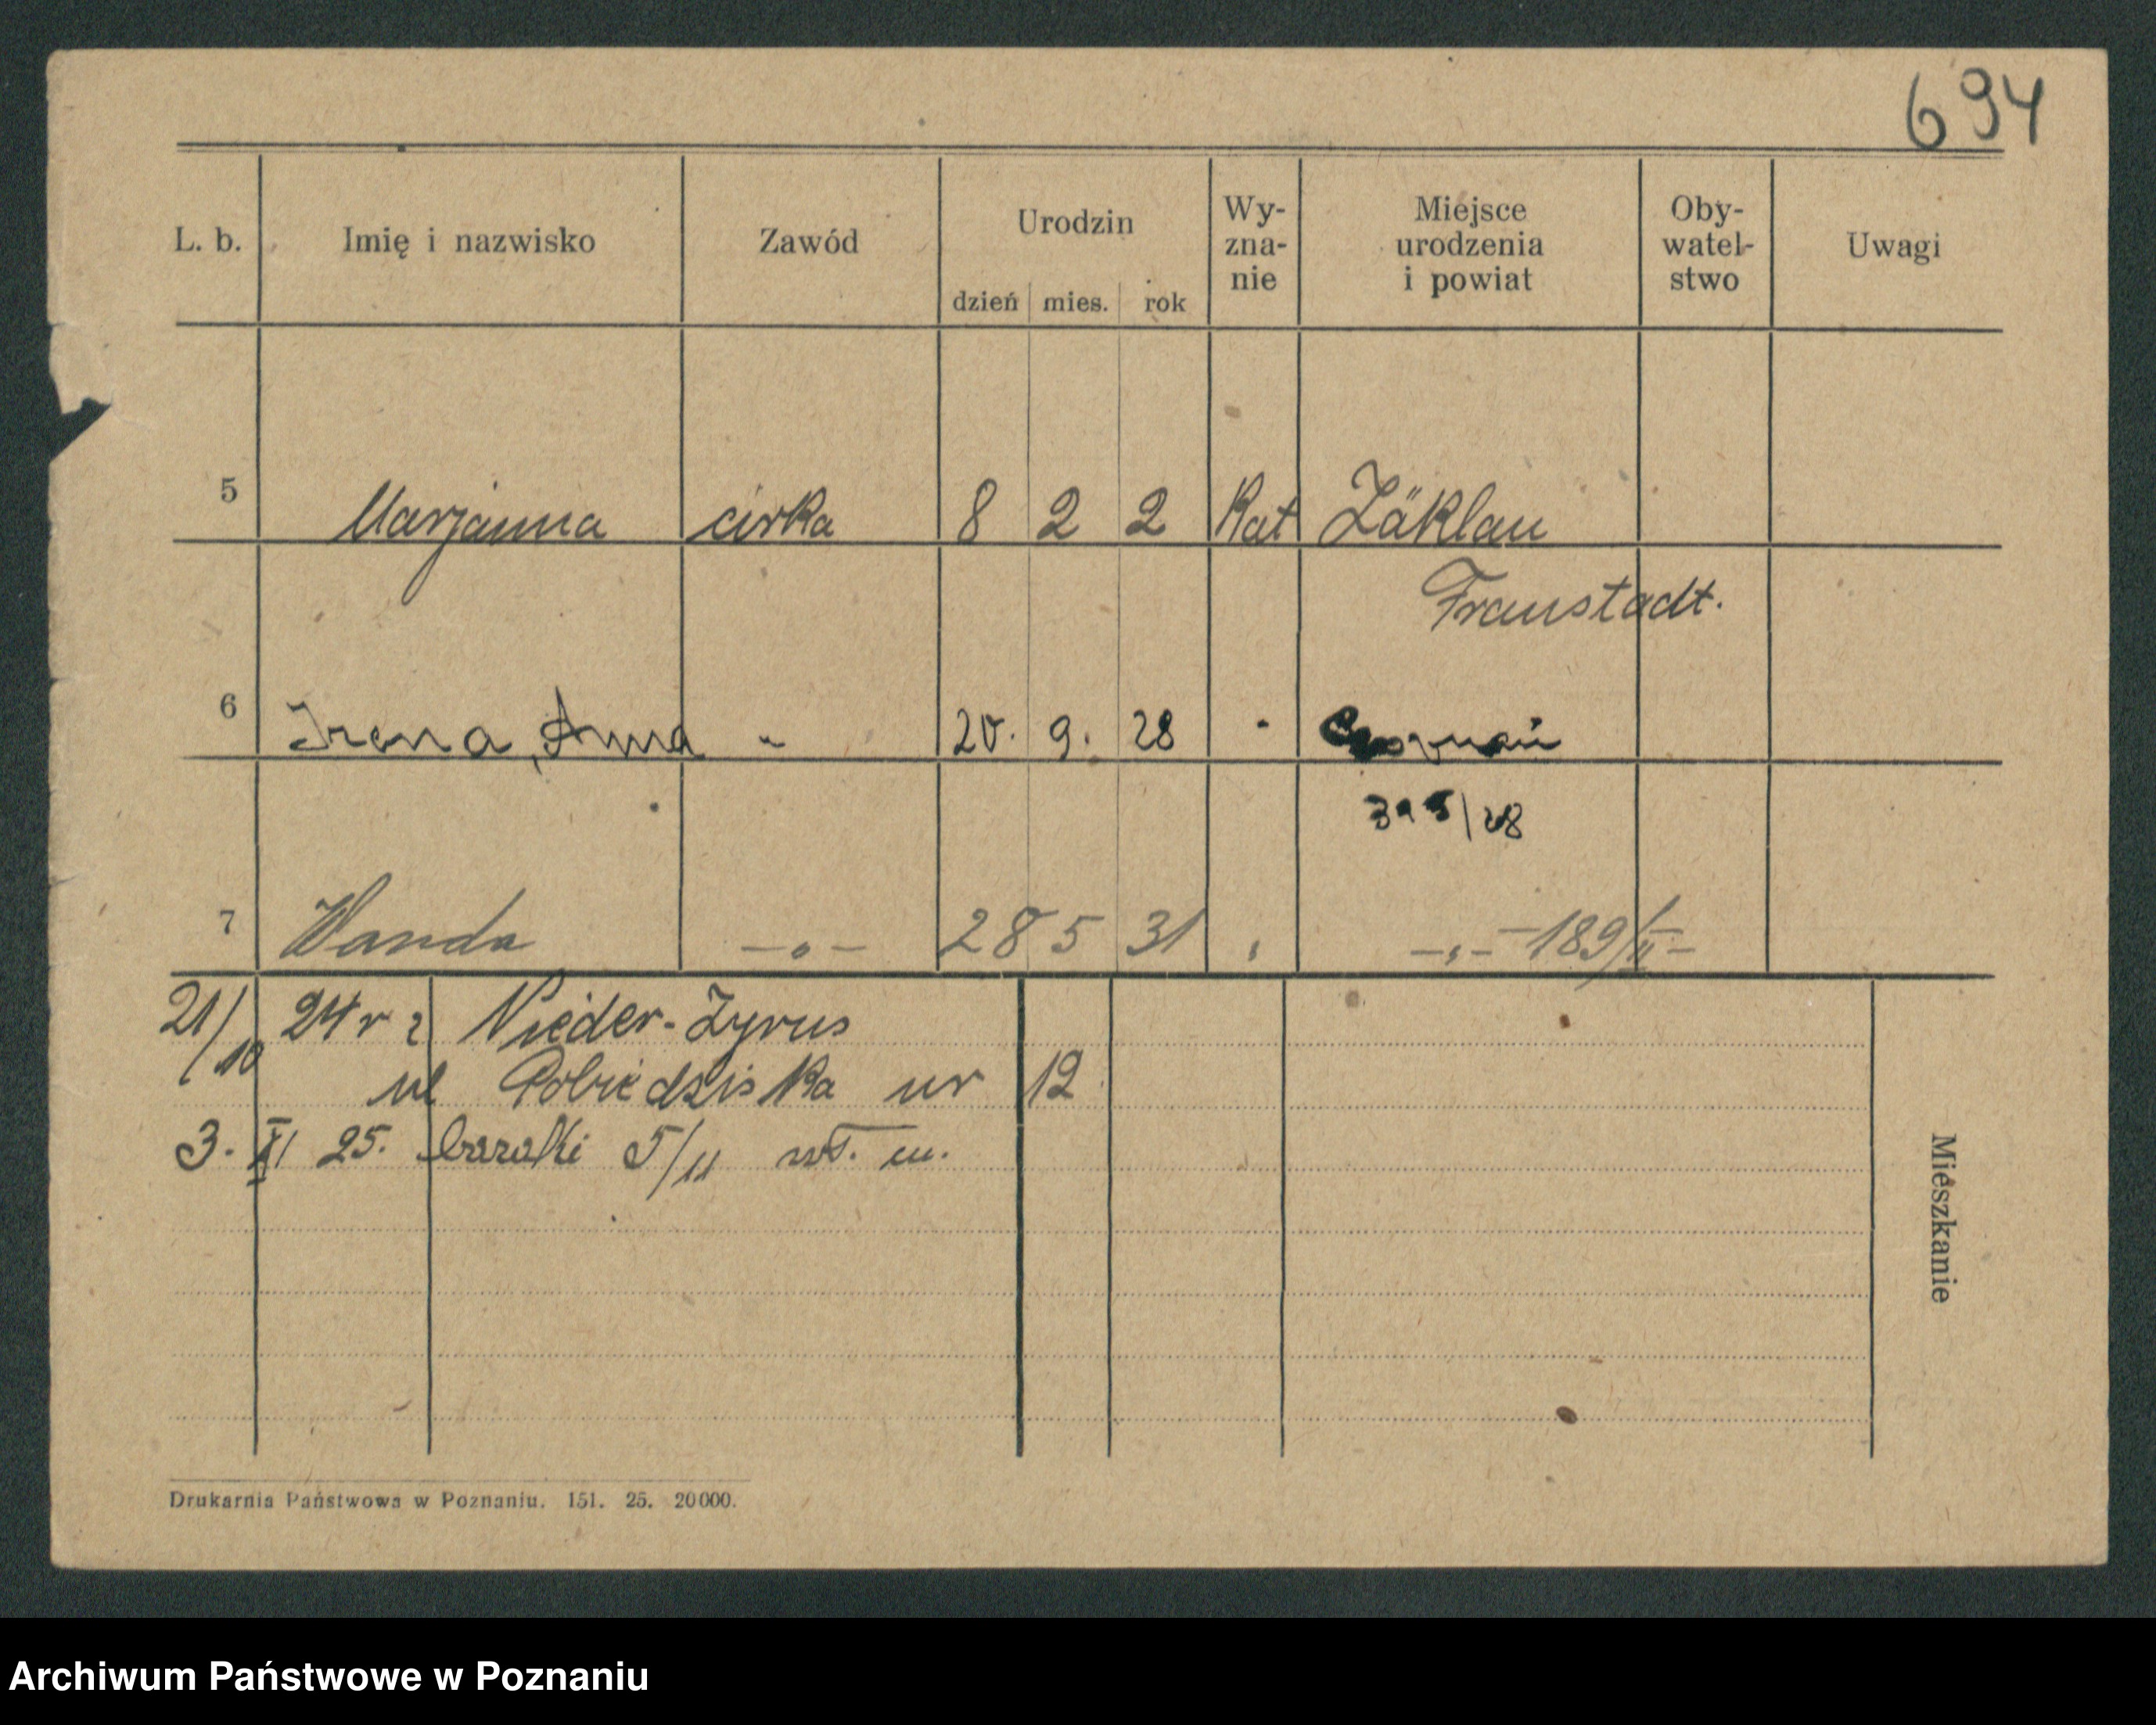 694
L. b. Imię i nazwisko Zawód Urodzin dzień mies. rok Wy-zna-nie Miejsce urodzenia i powiat Oby-watel-stwo Uwagi
5 Marjanna cirka 8 2 2 Kat Zäklau
Fraustadt.
6 Irena, Anna " 20. 9. 28 " Poznań
/28
7 Wanda –"– 28 5 31 " –"– 189/II –
21/10 24 r z Nieder-Zyrus
ul Pobiedziska nr 12
3. XI 25. baraki 5/11 wł. m.
Mieszkanie
Drukarnia Państwowa w Poznaniu. 151. 25. 20000.
Archiwum Państwowe w Poznaniu